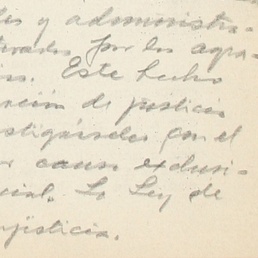 les y administra-
tivados por los agra-
ios. Este hecho
ción de justicia
estigárseles con el
or causa exclusi-
cial. La Ley de
njusticia.